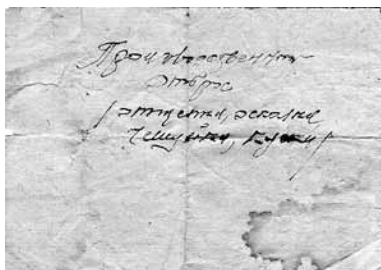 Производственный
отброс
осколки
чешуйки, куски/